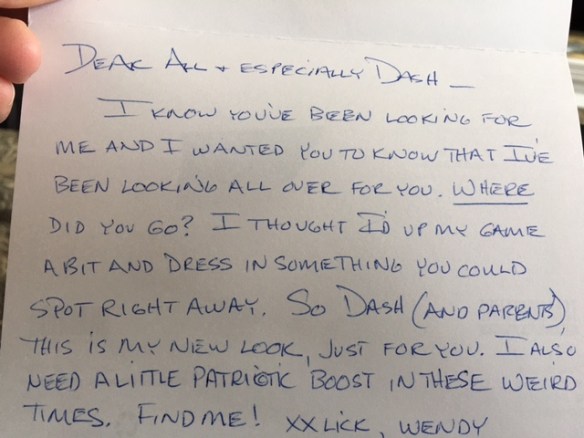 DEAR ALL + ESPECIALLY DASH —
I KNOW YOU'VE BEEN LOOKING FOR
ME AND I WANTED YOU TO KNOW THAT I'VE
BEEN LOOKING ALL OVER FOR YOU. WHERE
DID YOU GO? I THOUGHT I'D UP MY GAME
A BIT AND DRESS IN SOMETHING YOU COULD
SPOT RIGHT AWAY. SO DASH (AND PARENTS)
THIS IS MY NEW LOOK, JUST FOR YOU. I ALSO
NEED A LITTLE PATRIOTIC BOOST IN THESE WEIRD
TIMES. FIND ME! XX LICK, WENDY